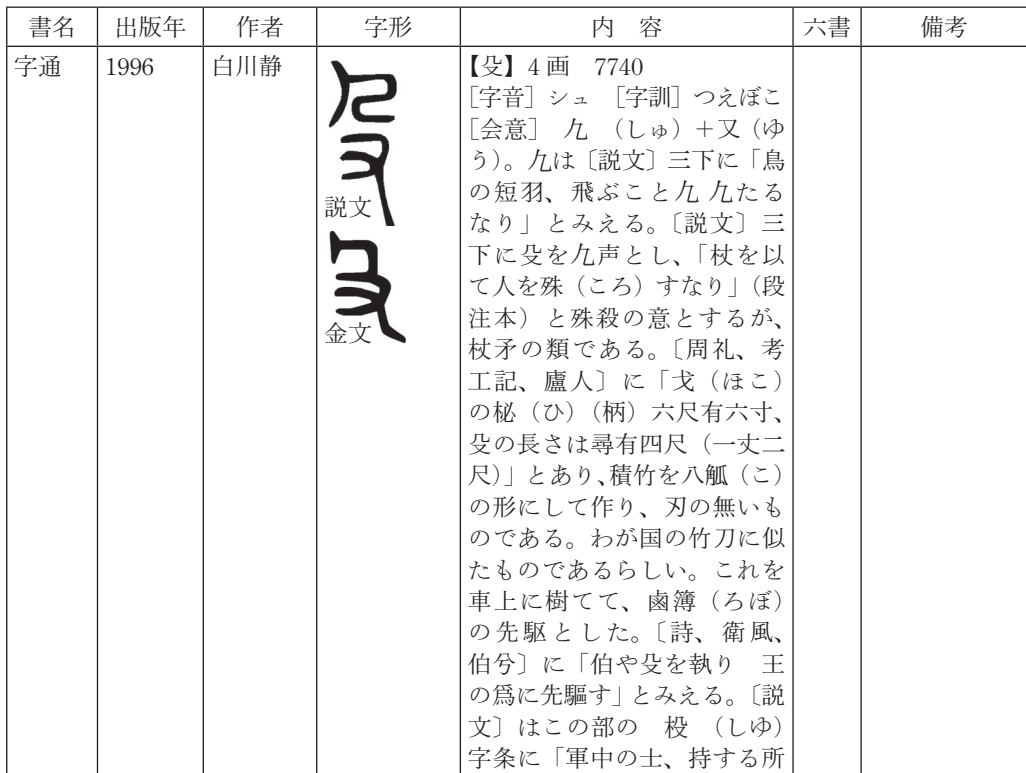 書名 出版年 作者 字形 内　容 六書 備考
字通 1996 白川静
説文
金文
【殳】4 画　7740
［字音］シュ　［字訓］つえぼこ
［会意］　𠘧　（しゅ）＋又（ゆ
う）。𠘧は〔説文〕三下に「鳥
の短羽、飛ぶこと𠘧 𠘧たる
なり」とみえる。〔説文〕三
下に殳を𠘧声とし、「杖を以
て人を殊（ころ）すなり」（段
注本）と殊殺の意とするが、
杖矛の類である。〔周礼、考
工記、廬人〕に「戈（ほこ）
の柲（ひ）（柄）六尺有六寸、
殳の長さは尋有四尺（一丈二
尺）」とあり、積竹を八觚（こ）
の形にして作り、刃の無いも
のである。わが国の竹刀に似
たものであるらしい。これを
車上に樹てて、鹵簿（ろぼ）
の先駆とした。〔詩、衛風、
伯兮〕に「伯や殳を執り　王
の爲に先驅す」とみえる。〔説
文〕はこの部の　杸　（しゆ）
字条に「軍中の士、持する所